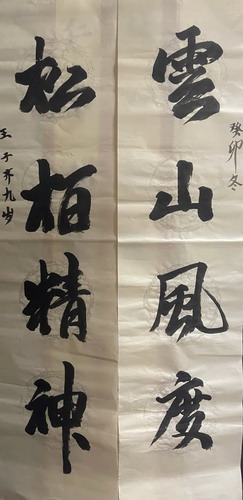 癸卯冬
雲山風度
松柏精神
王子齐九岁